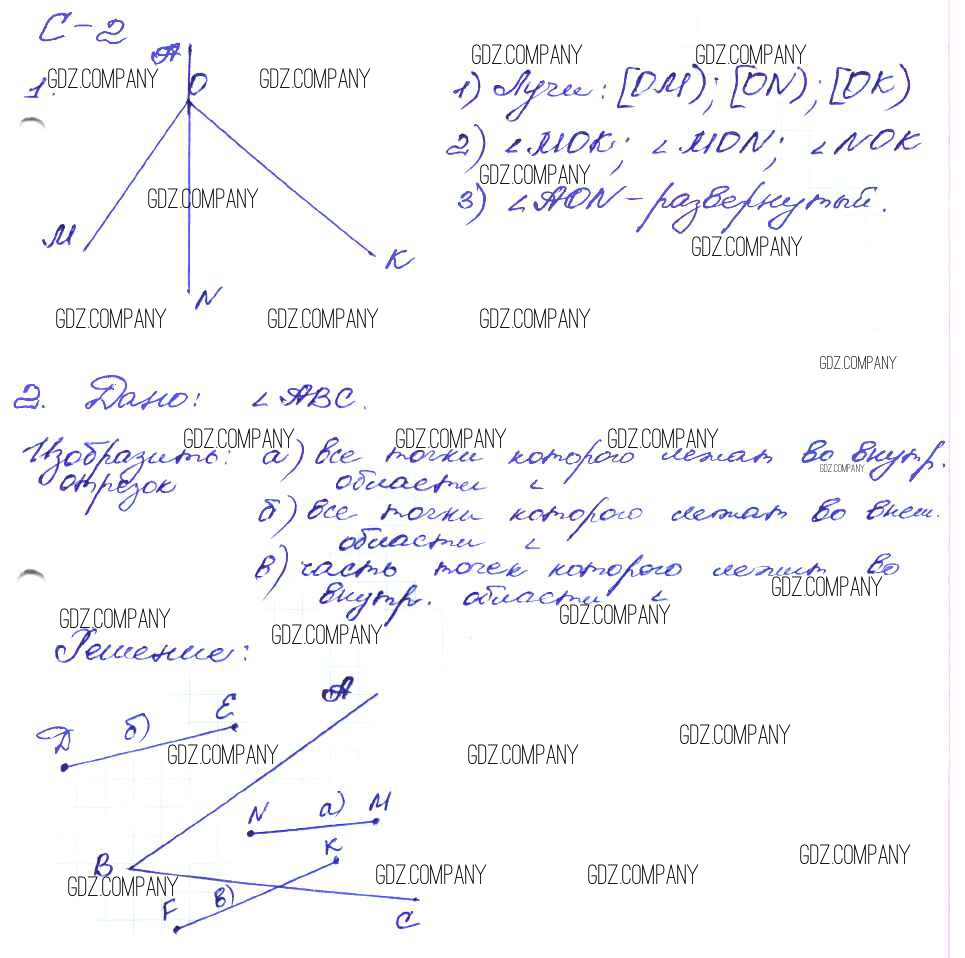 С-2
1.
А
О
М
N
К
1) Лучи: [OM); [ON); [OK)
2) ∠MOK; ∠MON; ∠NOK
3) ∠AON – развернутый.
2. Дано: ∠ABC.
Изобразить: а) все точки которого лежат во внутр.
отрезок области ∠
б) все точки которого лежат во внеш.
области ∠
в) часть точек которого лежит во
внутр. области ∠
Решение:
А
D б) E
N а) M
K
B
F в)
C
GDZ.COMPANY GDZ.COMPANY
GDZ.COMPANY GDZ.COMPANY
GDZ.COMPANY
GDZ.COMPANY
GDZ.COMPANY
GDZ.COMPANY GDZ.COMPANY GDZ.COMPANY
GDZ.COMPANY
GDZ.COMPANY GDZ.COMPANY GDZ.COMPANY
GDZ.COMPANY
GDZ.COMPANY
GDZ.COMPANY GDZ.COMPANY GDZ.COMPANY
GDZ.COMPANY
GDZ.COMPANY GDZ.COMPANY
GDZ.COMPANY
GDZ.COMPANY GDZ.COMPANY GDZ.COMPANY